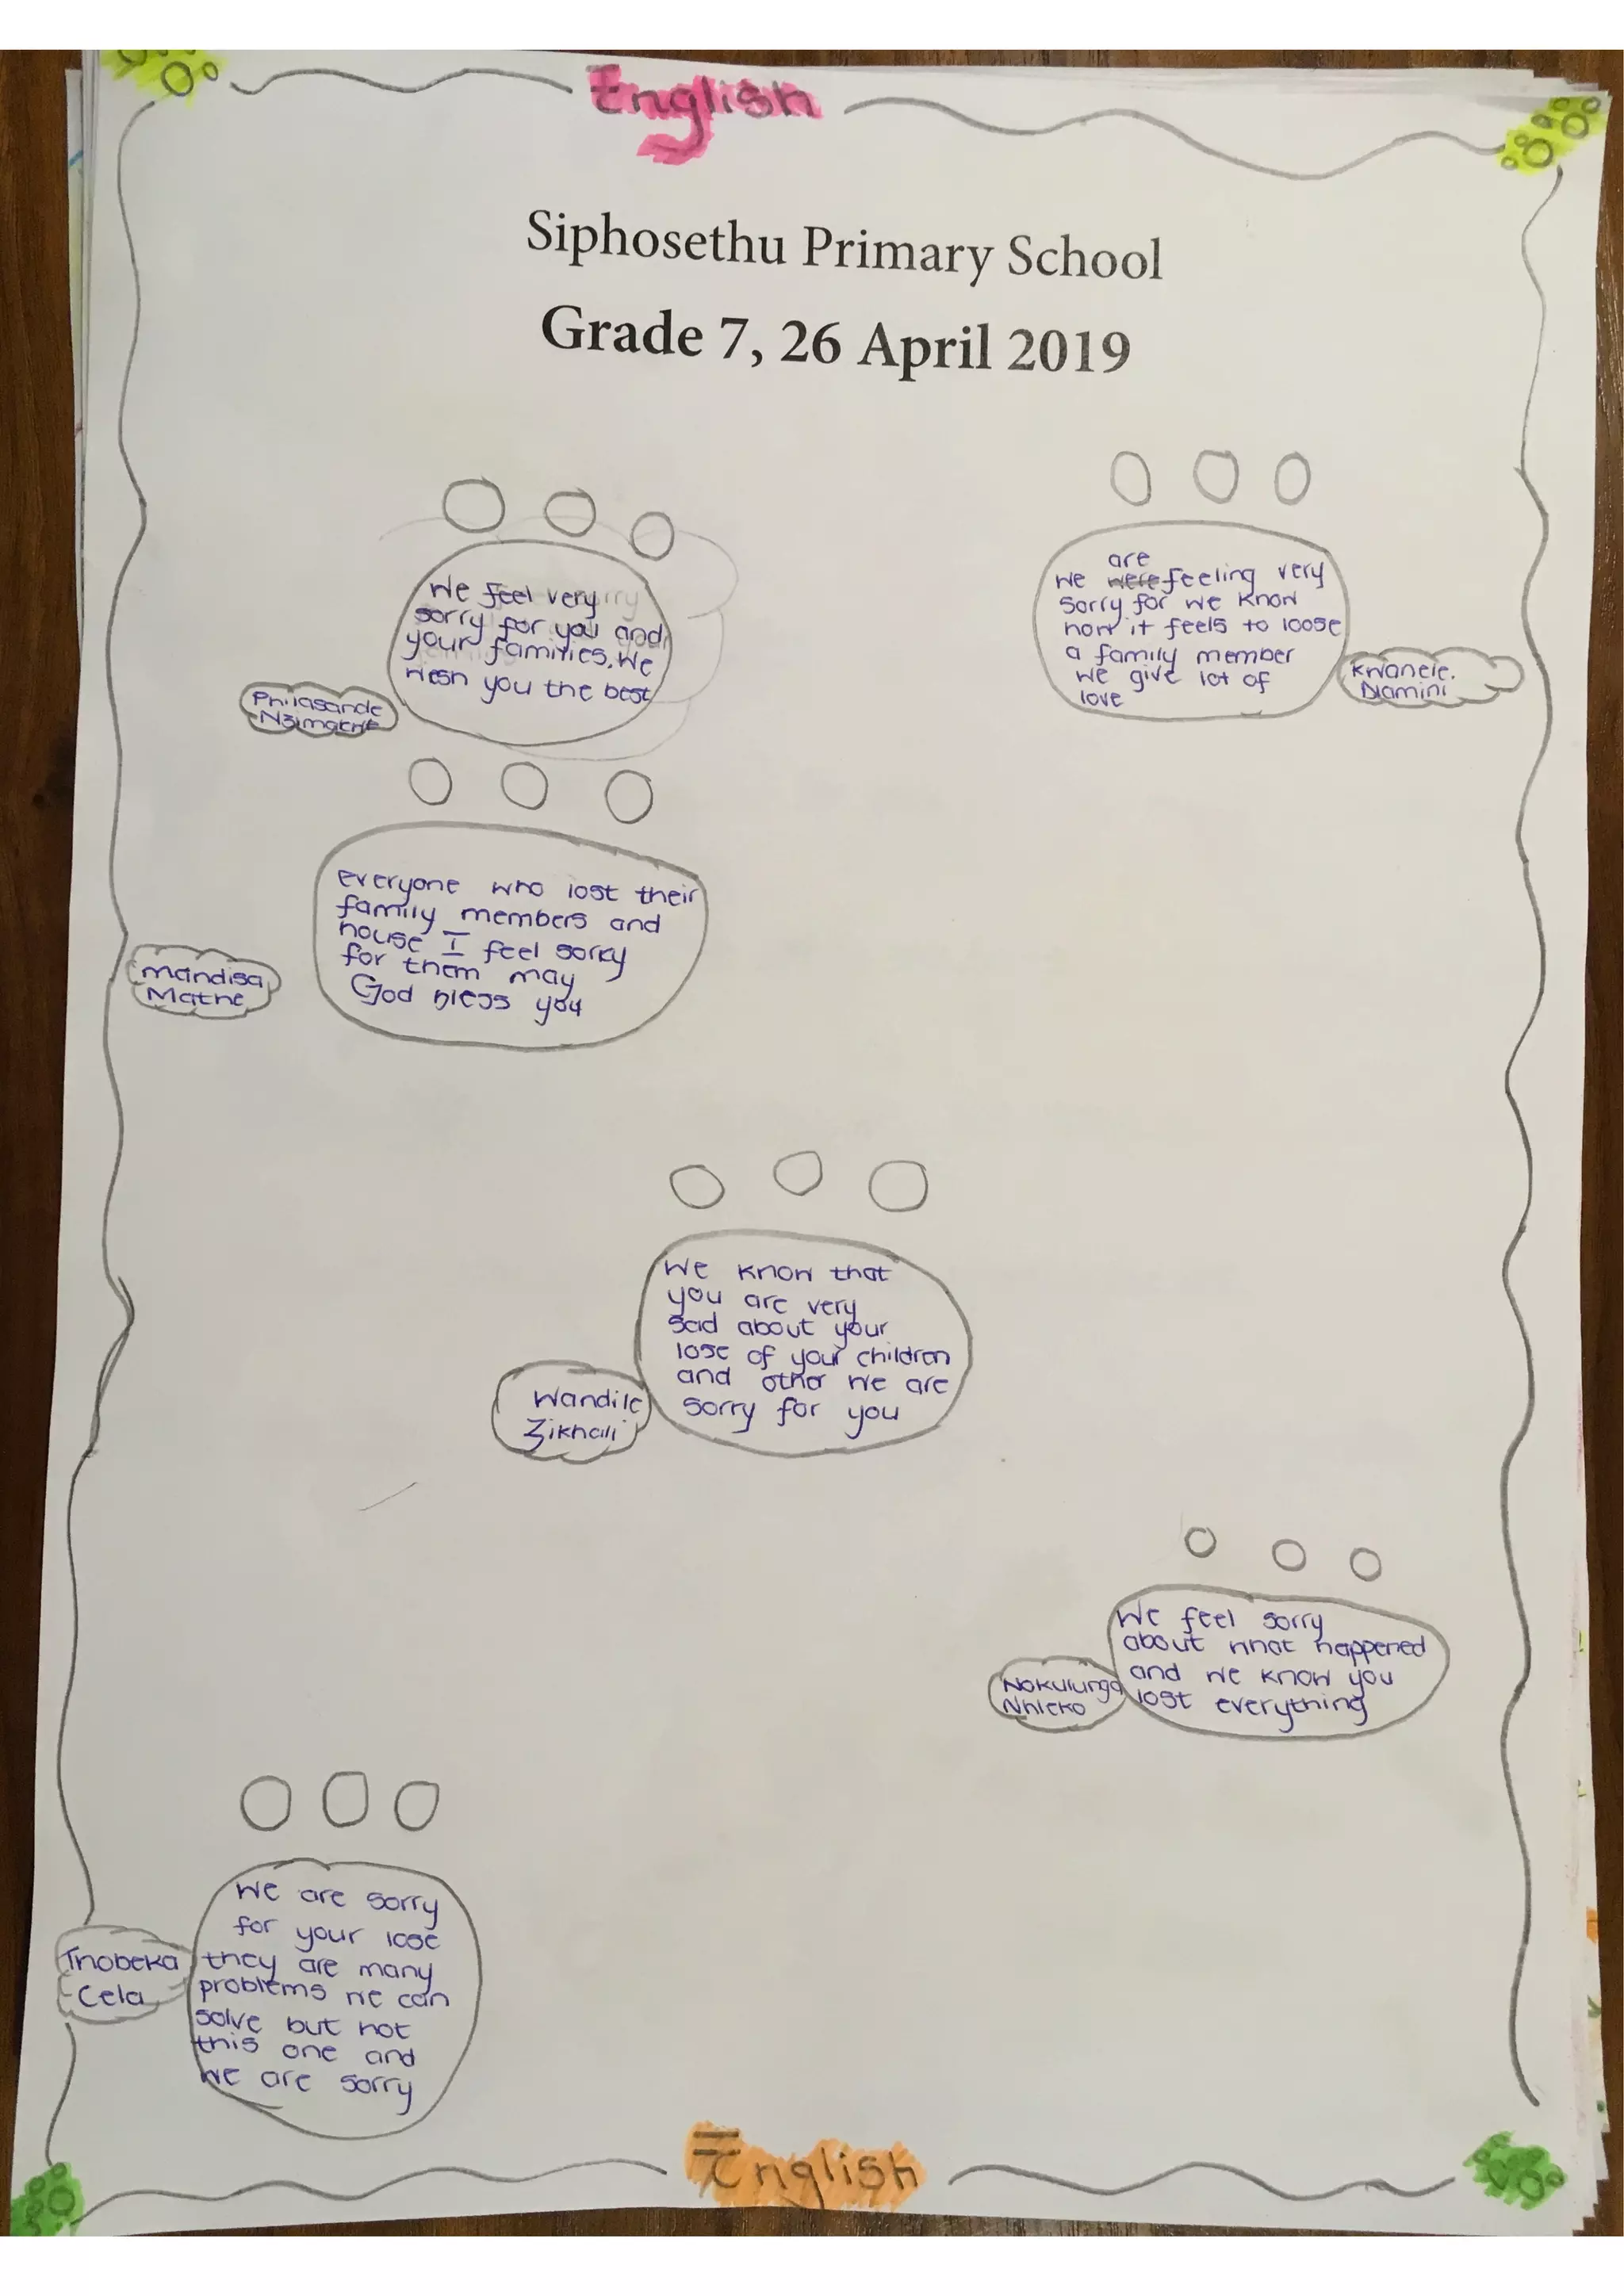 English
Siphosethu Primary School
Grade 7, 26 April 2019
We feel very
sorry for you and
your families. We
wish you the best
Philasande
Nzimande
are
We were feeling very
sorry for we know
how it feels to loose
a family member
we give lot of
love
Kwanele.
Dlamini
everyone who lost their
family members and
house I feel sorry
for them may
God bless you
Mandisa
Mathe
We know that
you are very
sad about your
lose of your children
and other we are
sorry for you
Wandile
Zikhali
We feel sorry
about what happened
and we know you
lost everything
Nokulunga
Nhleko
We are sorry
for your lose
they are many
problems we can
solve but not
this one and
we are sorry
Thobeka
Cela
English